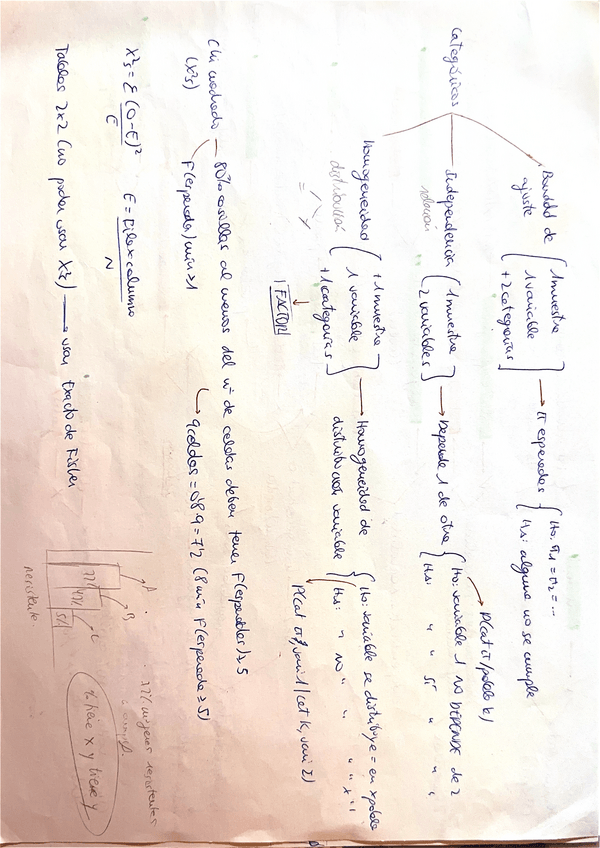 Categóricos
Bondad de ajuste
1 muestra
1 variable
+2 categorías
π esperadas
H0: π1 = π2 = ...
H1: alguna no se cumple
Independencia
relación
1 muestra
2 variables
Depende 1 de otra
H0: variable 1 no DEPENDE de 2
H1: " " sí " " "
Homogeneidad
distribución
+1 muestra
1 variable
+1 categorías
1 FACTOR
Homogeneidad de
distribución variable
H0: variable se distribuye = en
H1: " no " "
Chi cuadrado
(X²s)
80% casillas al menos del nº de celdas deben tener F(esperadas) ≥ 5
F(esperada) min ≥ 1
9 celdas = 0'8·9 = 7'2 (8 min F(esperada ≥ 5)
X²s = Σ (O-E)² / E
E = Fila x columna / N
Tablas 2x2 (no poder usar X²s) → usar Exacto de Fisher
A
B
C
persistente